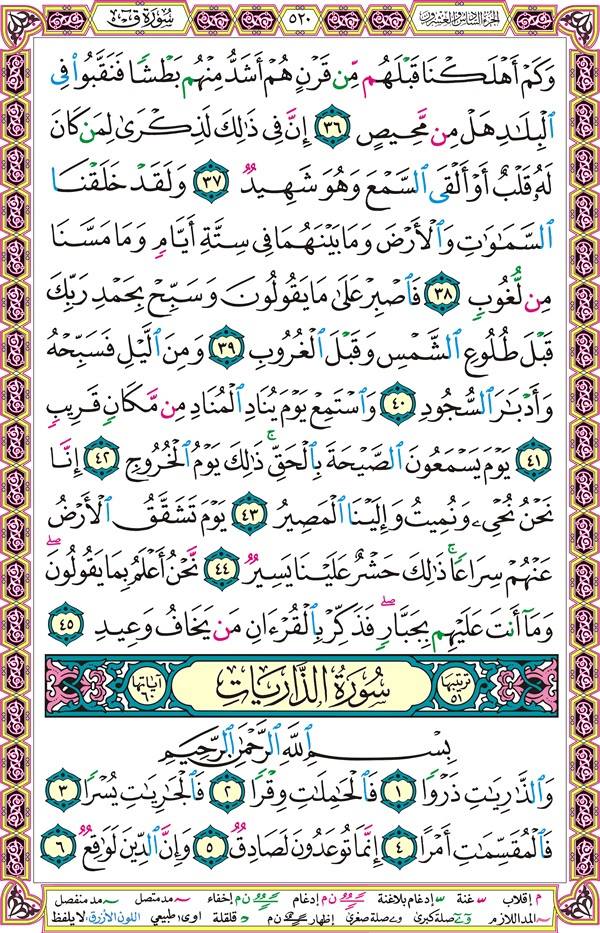 الجزء السادس والعشرون ٥٢٠ سُورَةُ قٓ
وَكَمْ أَهْلَكْنَا قَبْلَهُم مِّن قَرْنٍ هُمْ أَشَدُّ مِنْهُم بَطْشًا فَنَقَّبُوا۟ فِى
ٱلْبِلَٰدِ هَلْ مِن مَّحِيصٍ ٣٦ إِنَّ فِى ذَٰلِكَ لَذِكْرَىٰ لِمَن كَانَ
لَهُۥ قَلْبٌ أَوْ أَلْقَى ٱلسَّمْعَ وَهُوَ شَهِيدٌ ٣٧ وَلَقَدْ خَلَقْنَا
ٱلسَّمَٰوَٰتِ وَٱلْأَرْضَ وَمَا بَيْنَهُمَا فِى سِتَّةِ أَيَّامٍ وَمَا مَسَّنَا
مِن لُّغُوبٍ ٣٨ فَٱصْبِرْ عَلَىٰ مَا يَقُولُونَ وَسَبِّحْ بِحَمْدِ رَبِّكَ
قَبْلَ طُلُوعِ ٱلشَّمْسِ وَقَبْلَ ٱلْغُرُوبِ ٣٩ وَمِنَ ٱلَّيْلِ فَسَبِّحْهُ
وَأَدْبَٰرَ ٱلسُّجُودِ ٤٠ وَٱسْتَمِعْ يَوْمَ يُنَادِ ٱلْمُنَادِ مِن مَّكَانٍ قَرِيبٍ
٤١ يَوْمَ يَسْمَعُونَ ٱلصَّيْحَةَ بِٱلْحَقِّ ۚ ذَٰلِكَ يَوْمُ ٱلْخُرُوجِ ٤٢ إِنَّا
نَحْنُ نُحْىِۦ وَنُمِيتُ وَإِلَيْنَا ٱلْمَصِيرُ ٤٣ يَوْمَ تَشَقَّقُ ٱلْأَرْضُ
عَنْهُمْ سِرَاعًا ۚ ذَٰلِكَ حَشْرٌ عَلَيْنَا يَسِيرٌ ٤٤ نَّحْنُ أَعْلَمُ بِمَا يَقُولُونَ ۖ
وَمَآ أَنتَ عَلَيْهِم بِجَبَّارٍ ۖ فَذَكِّرْ بِٱلْقُرْءَانِ مَن يَخَافُ وَعِيدِ ٤٥
ترتيبها ٥١ سُورَةُ الذَّارِيَاتِ آياتها ٦٠
بِسْمِ ٱللَّهِ ٱلرَّحْمَٰنِ ٱلرَّحِيمِ
وَٱلذَّٰرِيَٰتِ ذَرْوًا ١ فَٱلْحَٰمِلَٰتِ وِقْرًا ٢ فَٱلْجَٰرِيَٰتِ يُسْرًا ٣
فَٱلْمُقَسِّمَٰتِ أَمْرًا ٤ إِنَّمَا تُوعَدُونَ لَصَادِقٌ ٥ وَإِنَّ ٱلدِّينَ لَوَٰقِعٌ ٦
م إقلاب غنة إدغام بلاغنة ن م إدغام إخفاء مد متصل مد منفصل
المد اللازم صلة كبرى صلة صغرى إظهار ن م قلقلة اوى: طبيعي اللون الأزرق: لا يلفظ